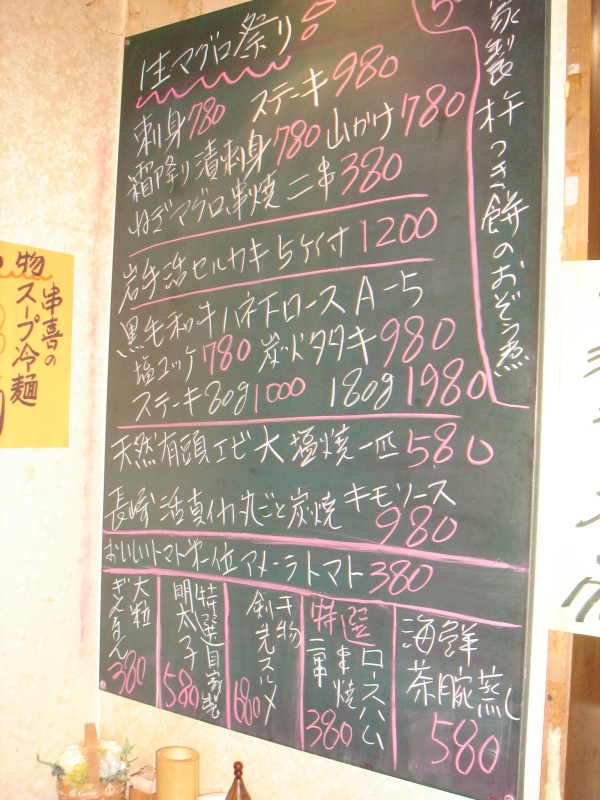 生マグロ祭り
刺身780 ステーキ980
霜降り漬刺身780 山かけ780
ねぎマグロ串焼 二串380
岩手活セルカキ 5ケ付 1200
黒毛和牛ハネ下ロース A-5
塩ユッケ780 炭火タタキ980
ステーキ80g1000 180g1980
天然有頭エビ大塩焼一匹580
長崎活真イカ丸ごと炭焼キモソース
980
おいしいトマト第一位アメーラトマト380
大粒
ぎんなん
380
特選自家製
明太子
580
干物
剣先スルメ
680
特選
ロースハム
串焼
二串
380
海鮮
茶腕蒸し
580
家製 杵つき餅のおぞう煮
5
物
串喜の
スープ冷麺